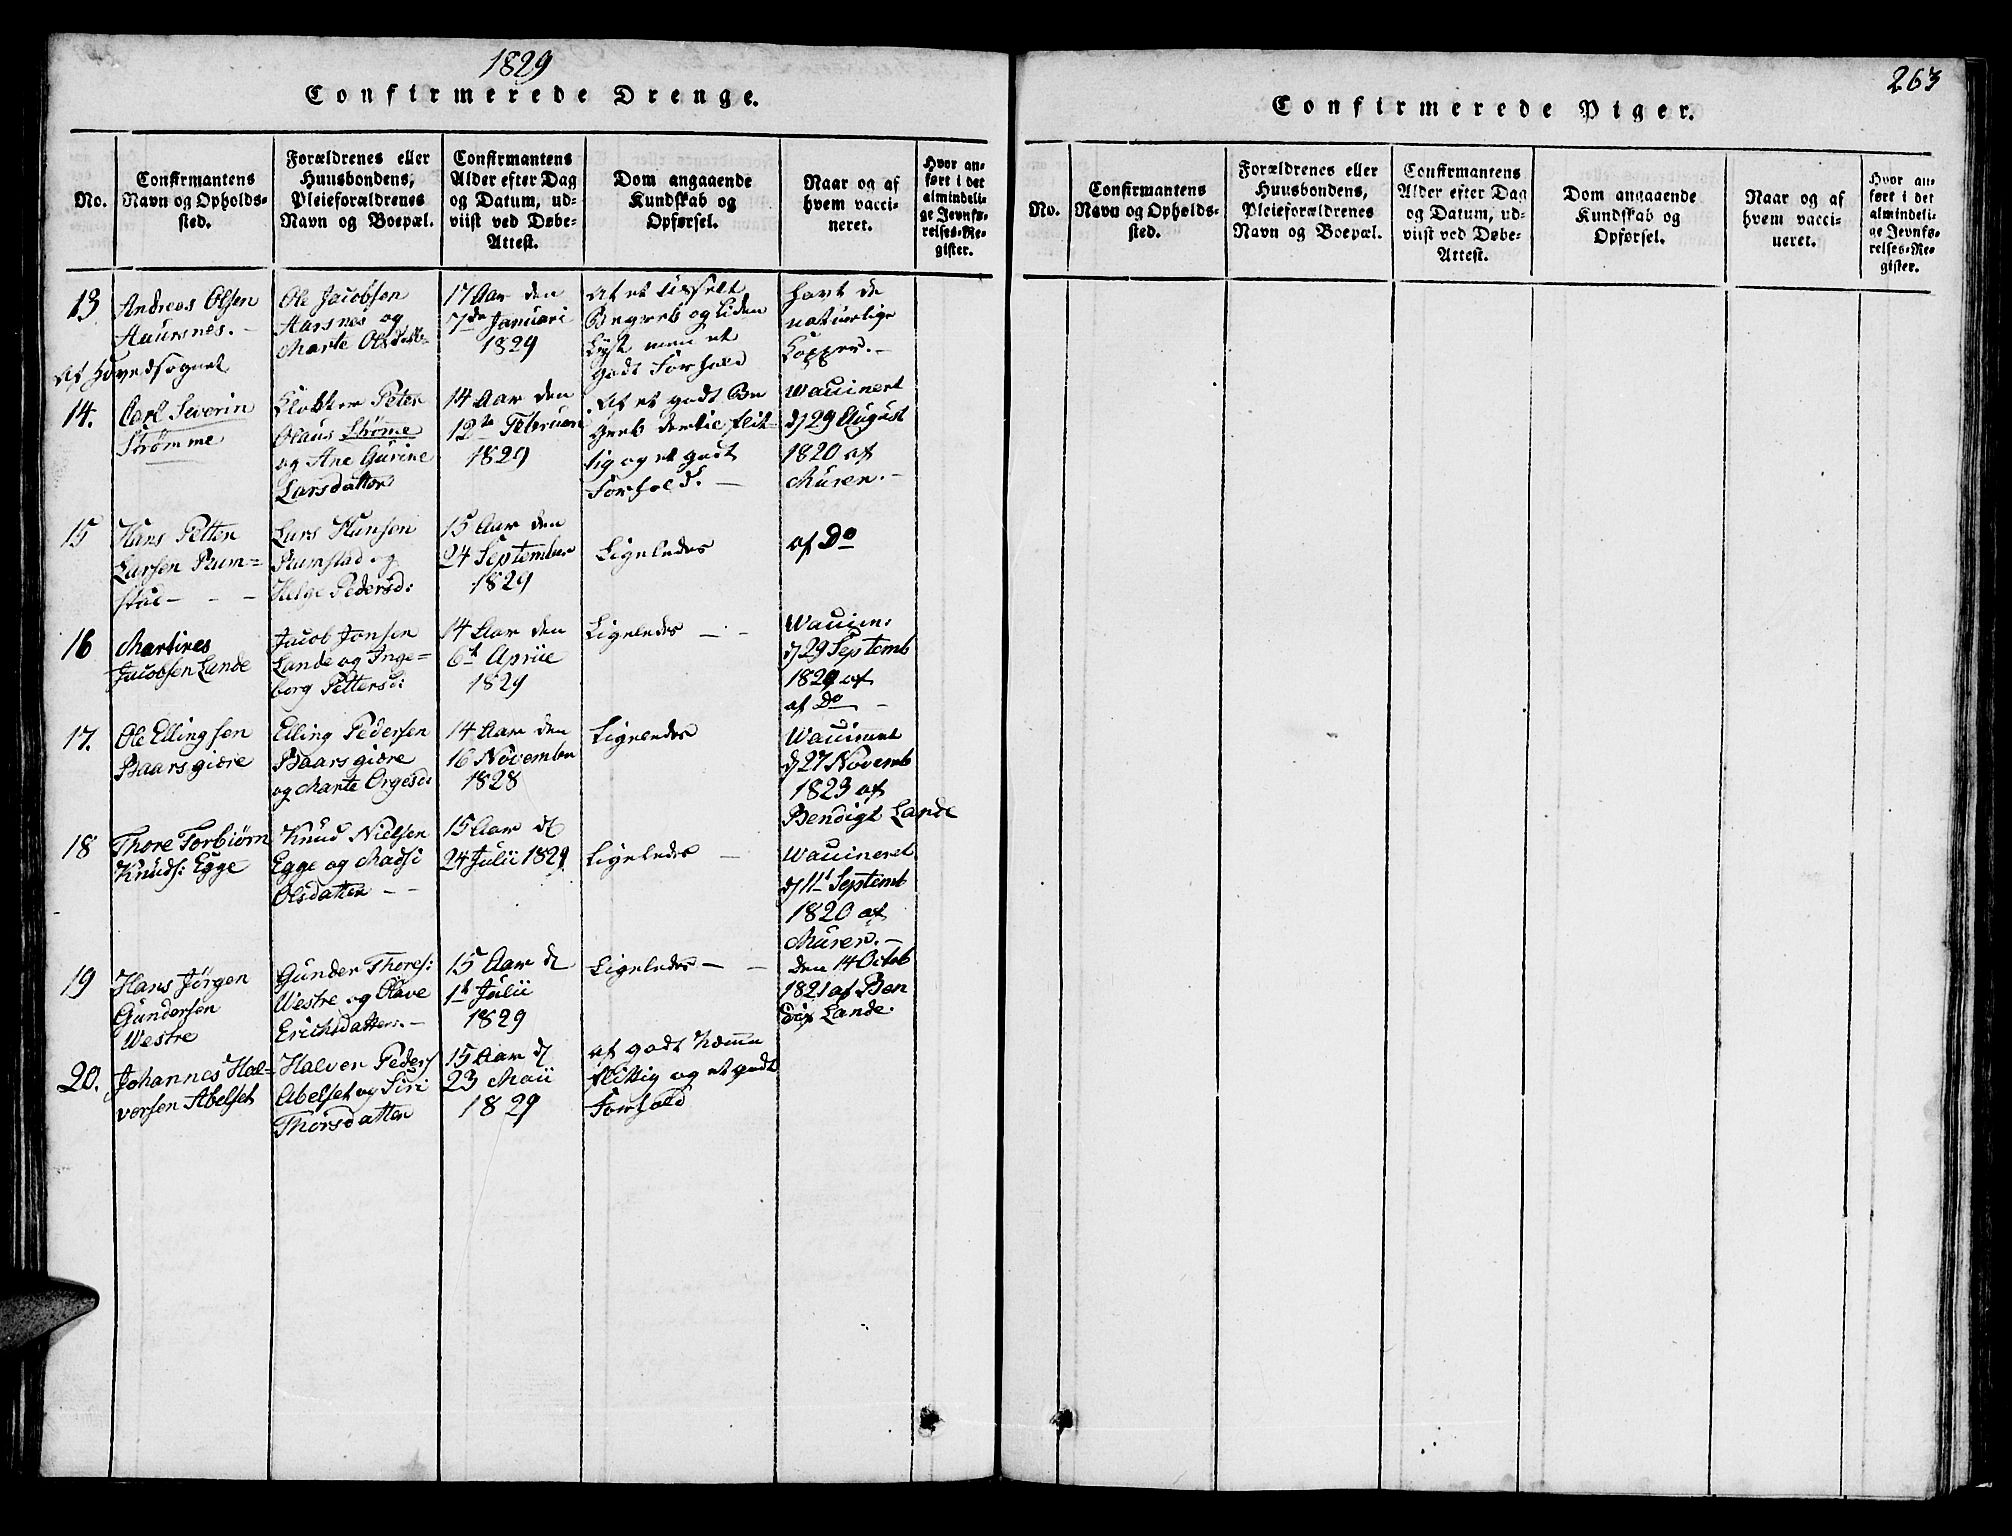 1829
Confirmerede Drenge.
No.
Confirmantens
Navn og Opholds-
sted.
Forældrenes eller
Huusbondens,
Pleieforældrenes
Navn og Boepæl.
Confirmantens
Alder efter Dag
og Datum, ud-
viist ved Døbe-
Attest.
Dom angaaende
Kundskab og
Opførsel.
Naar og af
hvem vacci-
neret.
Hvor an-
ført i det
almindeli-
ge Jevnfø-
relses-Re-
gister.
13
Andreas Olsen
Aaursnes. -
Ole Jacobsen
Aarsnes og
Marte Olsdatt-
17 Aar den
7de Januari
1829
Af et
Begreb og liden
Lyst men et
godt Forhold
havt de
naturlige
Kopper. -
Af Hovedsognet
14.
Carl Severin
Strømme
Klokker Peter
Olaus Strøme
og Ane Gurine
Larsdatter
14 Aar den
12te Februari
1829
Af et godt Be
greb flit-
tig og et godt
Forhold. -
Waccinert
d 29 August
1820 af
Muren. -
15
Hans Petter
Larsen Rum-
stad - - -
Lars Hansen
Rumstad og
Helge Pedersd:
15 Aar den
24 September
1829
Ligeledes
af Do
16
Martines
Jacobsen Lande
Jacob Jonsen
Lande og Inge-
borg Pettersd:
14 Aar den
6t April
1829
Ligeledes - -
Waccin:
d 29 Septemb
1820 af
af Do -
17.
Ole Ellingsen
Baarsgiøre
Elling Pedersen
Baarsgiøre
og Marte Orgesd:
14 Aar den
16 November
1828
Ligeledes
Waccineret
d 27 Novemb
1823 af
Bendigt Lande
18
Thore Torbiørn
Knuds: Egge
Knud Nielsen
Egge og Madsi
Olsdatter - -
15 Aar d
24 Julii 1829
Ligeledes -
Waccineret
d 11t Septemb
1820 af
Muren. -
19
Hans Jörgen
Gundersen
Westre
Gunder Thores:
Westre og Olave
Erichsdatter. -
15 Aar d
1t Julii
1829
Ligeledes - -
den 14 Octob
1821 af Ben
dix Lande.
20.
Johannes Hal-
vorsen Abelset
Halvor Peders
Abelset og Siri
Thorsdatter
15 Aar d
23 Maii
1829
af godt Nemme
flittig og et godt
Forhold
263
Confirmerede Piger.
No.
Confirmantens
Navn og Opholds-
sted.
Forældrenes eller
Huusbondens,
Pleieforældrenes
Navn og Boepæl.
Confirmantens
Alder efter Dag
og Datum, ud-
viist ved Døbe-
Attest.
Dom angaaende
Kundskab og
Opførsel.
Naar og af
hvem vacci-
neret.
Hvor an-
ført i det
almindeli-
ge Jevnfø-
relses-Re-
gister.